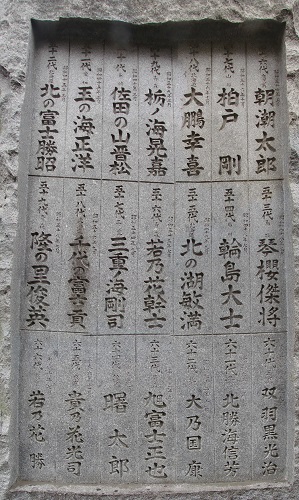 四十六代
朝潮太郎
四十七代
柏戸 剛
四十八代
大鵬幸喜
四十九代
栃ノ海晃嘉
五十代
佐田の山晋松
五十一代
玉の海正洋
五十二代
北の富士勝昭
五十三代
琴櫻傑将
五十四代
輪島大士
五十五代
北の湖敏満
五十六代
若乃花幹士
五十七代
三重ノ海剛司
五十八代
千代の富士貢
五十九代
隆の里俊英
六十代
双羽黒光治
六十一代
北勝海信芳
六十二代
大乃国 康
六十三代
旭富士正也
六十四代
曙 太郎
六十五代
貴乃花光司
六十六代
若乃花 勝